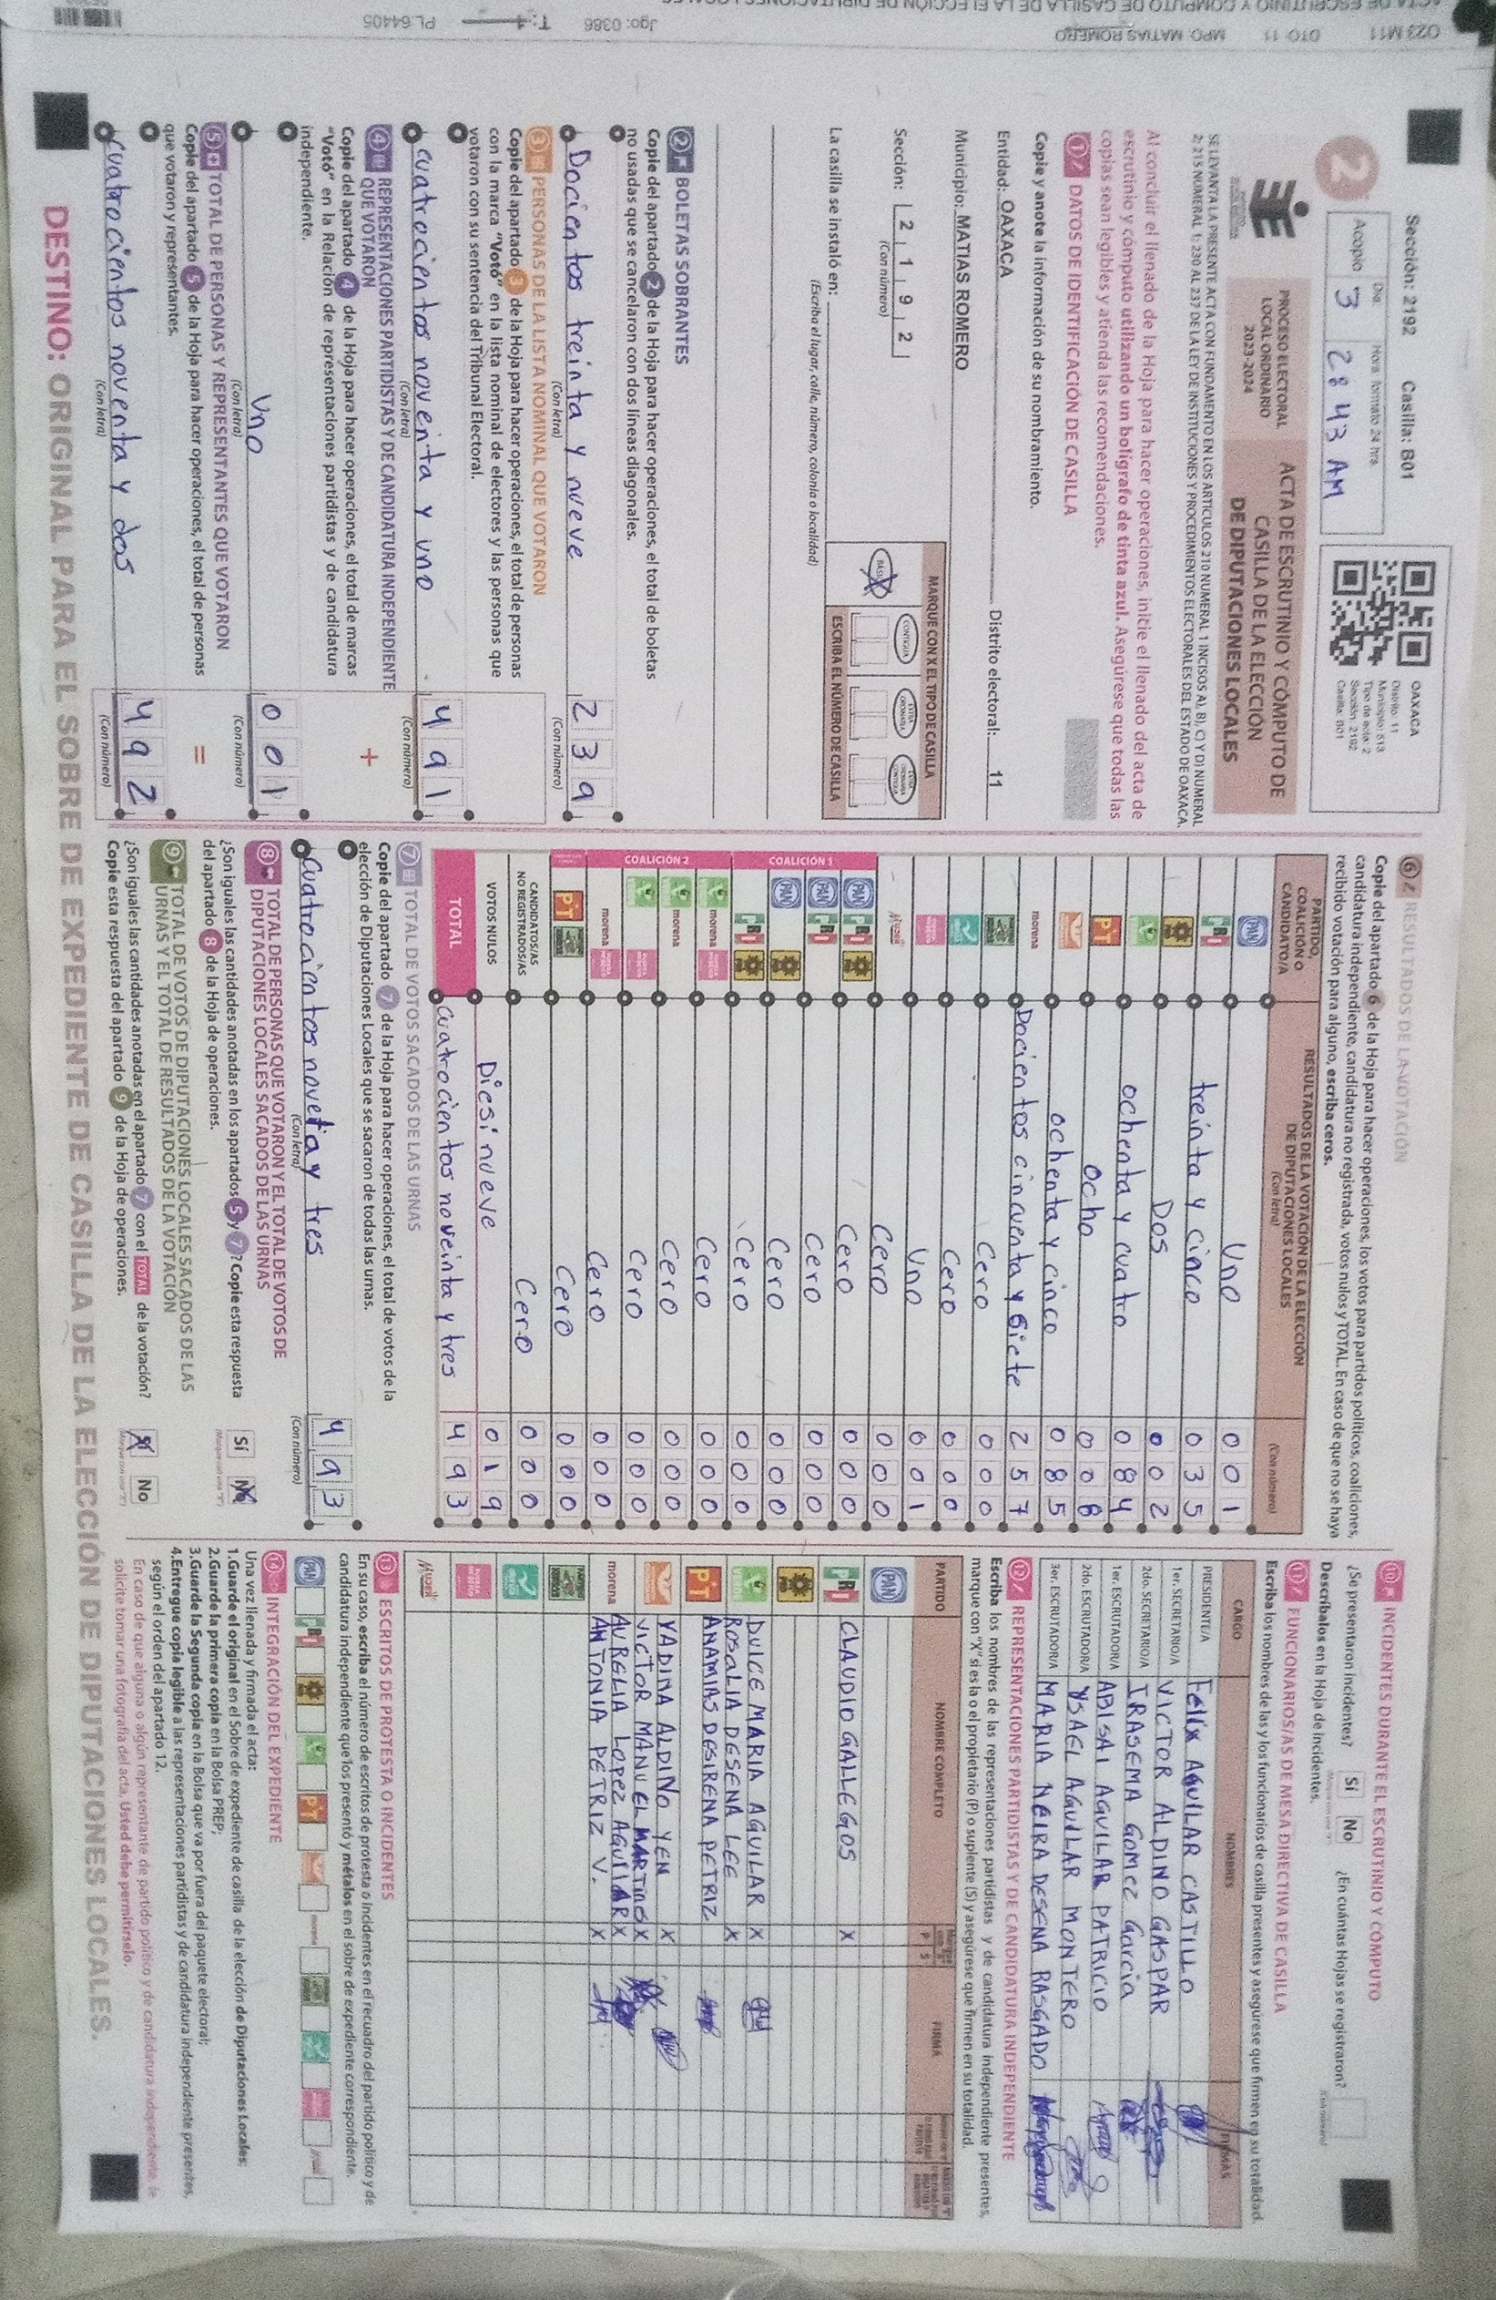 Sección: 2192 Casilla: B01
2
Día: Hora formato 24 hrs
Acopio 3 2:43 AM
OAXACA
Distrito: 11
Municipio: 513
Tipo de acta: 2
Sección: 2192
Casilla: B01
PROCESO ELECTORAL
LOCAL ORDINARIO
2023-2024
ACTA DE ESCRUTINIO Y CÓMPUTO DE
CASILLA DE LA ELECCIÓN
DE DIPUTACIONES LOCALES
SE LEVANTA LA PRESENTE ACTA CON FUNDAMENTO EN LOS ARTÍCULOS 210 NUMERAL 1 INCISOS A), B), C) Y D) NUMERAL
2; 215 NUMERAL 1; 230 AL 237 DE LA LEY DE INSTITUCIONES Y PROCEDIMIENTOS ELECTORALES DEL ESTADO DE OAXACA.
Al concluir el llenado de la Hoja para hacer operaciones, inicie el llenado del acta de
escrutinio y cómputo utilizando un bolígrafo de tinta azul. Asegúrese que todas las
copias sean legibles y atienda las recomendaciones.
1 DATOS DE IDENTIFICACIÓN DE CASILLA
Copie y anote la información de su nombramiento.
Entidad: OAXACA Distrito electoral: 11
Municipio: MATIAS ROMERO
Sección: 2 1 9 2
(Con número)
MARQUE CON X EL TIPO DE CASILLA
BÁSICA CONTIGUA
ESCRIBA EL NÚMERO DE CASILLA
La casilla se instaló en:
(Escriba el lugar, calle, número, colonia o localidad)
2 BOLETAS SOBRANTES
Copie del apartado 2 de la Hoja para hacer operaciones, el total de boletas
no usadas que se cancelaron con dos líneas diagonales.
Docientos treinta y nueve 2 3 9
(Con letra) (Con número)
3 PERSONAS DE LA LISTA NOMINAL QUE VOTARON
Copie del apartado 3 de la Hoja para hacer operaciones, el total de personas
con la marca "Votó" en la lista nominal de electores y las personas que
votaron con su sentencia del Tribunal Electoral.
cuatrocientos noventa y uno 4 9 1
(Con letra) (Con número)
4 REPRESENTACIONES PARTIDISTAS Y DE CANDIDATURA INDEPENDIENTE
QUE VOTARON
+
Copie del apartado 4 de la Hoja para hacer operaciones, el total de marcas
"Votó" en la Relación de representaciones partidistas y de candidatura
independiente.
Uno 0 0 1
(Con letra) (Con número)
5 TOTAL DE PERSONAS Y REPRESENTANTES QUE VOTARON
=
Copie del apartado 5 de la Hoja para hacer operaciones, el total de personas
que votaron y representantes.
cuatrocientos noventa y dos 4 9 2
(Con letra) (Con número)
6 RESULTADOS DE LA VOTACIÓN
Copie del apartado 6 de la Hoja para hacer operaciones, los votos para partidos políticos, coaliciones,
candidatura independiente, candidatura no registrada, votos nulos y TOTAL. En caso de que no se haya
recibido votación para alguno, escriba ceros.
PARTIDO,
COALICIÓN O
CANDIDATO/A
RESULTADOS DE LA VOTACIÓN DE LA ELECCIÓN
DE DIPUTACIONES LOCALES
(Con letra) (Con número)
PAN Uno 0 0 1
PRI treinta y cinco 0 3 5
PRD Dos 0 0 2
VERDE ochenta y cuatro 0 8 4
PT ocho 0 0 8
ochenta y cinco 0 8 5
morena Docientos cincuenta y siete 2 5 7
Cero 0 0 0
Cero 0 0 0
Uno 0 0 1
Mujer Cero 0 0 0
COALICIÓN 1
PAN PRI PRD Cero 0 0 0
PAN PRI Cero 0 0 0
PAN PRD Cero 0 0 0
PRI PRD Cero 0 0 0
COALICIÓN 2
VERDE morena Cero 0 0 0
VERDE morena Cero 0 0 0
VERDE Cero 0 0 0
morena Cero 0 0 0
PT Cero 0 0 0
CANDIDATOS/AS
NO REGISTRADOS/AS Cero 0 0 0
VOTOS NULOS Diesinueve 0 1 9
TOTAL cuatrocientos noveinta y tres 4 9 3
7 TOTAL DE VOTOS SACADOS DE LAS URNAS
Copie del apartado 7 de la Hoja para hacer operaciones, el total de votos de la
elección de Diputaciones Locales que se sacaron de todas las urnas.
cuatrocientos noventa y tres 4 9 3
(Con letra) (Con número)
8 TOTAL DE PERSONAS QUE VOTARON Y EL TOTAL DE VOTOS DE
DIPUTACIONES LOCALES SACADOS DE LAS URNAS
¿Son iguales las cantidades anotadas en los apartados 5 y 7? Copie esta respuesta
del apartado 8 de la Hoja de operaciones.
Sí No
9 TOTAL DE VOTOS DE DIPUTACIONES LOCALES SACADOS DE LAS
URNAS Y EL TOTAL DE RESULTADOS DE LA VOTACIÓN
¿Son iguales las cantidades anotadas en el apartado 7 con el TOTAL de la votación?
Copie esta respuesta del apartado 9 de la Hoja de operaciones.
Sí No
10 INCIDENTES DURANTE EL ESCRUTINIO Y CÓMPUTO
¿Se presentaron incidentes? Sí No ¿En cuántas Hojas se registraron?
Descríbalos en la Hoja de incidentes.
11 FUNCIONARIOS/AS DE MESA DIRECTIVA DE CASILLA
Escriba los nombres de las y los funcionarios de casilla presentes y asegúrese que firmen en su totalidad.
CARGO NOMBRES FIRMAS
PRESIDENTE/A Felix AGUILAR CASTILLO
1er. SECRETARIO/A VICTOR ALDINO GASPAR
2do. SECRETARIO/A IRASEMA GOMEZ Garcia
1er. ESCRUTADOR/A ABISAI AGUILAR PATRICIO
2do. ESCRUTADOR/A YSAEL AGUILAR MONTERO
3er. ESCRUTADOR/A MARIA NEIRA DESENA RASGADO
12 REPRESENTACIONES PARTIDISTAS Y DE CANDIDATURA INDEPENDIENTE
Escriba los nombres de las representaciones partidistas y de candidatura independiente presentes,
marque con "X" si es la o el propietario (P) o suplente (S) y asegúrese que firmen en su totalidad.
PARTIDO NOMBRE COMPLETO P S FIRMA
PAN
PRI CLAUDIO GALLEGOS X
PRD
VERDE DULCE MARIA AGUILAR X
ROSALIA DESENA LEE X
PT ANAMIAS DESIRENA PETRIZ
YADIRA ALDINO YEN X
VICTOR MANUEL MARTINES X
morena AURELIA LOPEZ AGUILAR X
ANTONIA PETRIZ V. X
Mujer
13 ESCRITOS DE PROTESTA O INCIDENTES
En su caso, escriba el número de escritos de protesta o incidentes en el recuadro del partido político y de
candidatura independiente que los presentó y métalos en el sobre de expediente correspondiente.
PAN PRI PRD VERDE PT morena Mujer
14 INTEGRACIÓN DEL EXPEDIENTE
Una vez llenada y firmada el acta:
1.Guarde el original en el Sobre de expediente de casilla de la elección de Diputaciones Locales;
2.Guarde la primera copia en la Bolsa PREP;
3.Guarde la Segunda copia en la Bolsa que va por fuera del paquete electoral;
4.Entregue copia legible a las representaciones partidistas y de candidatura independiente presentes,
según el orden del apartado 12.
En caso de que alguna o algún representante de partido político y de candidatura independiente, le
solicite tomar una fotografía del acta. Usted debe permitírselo.
DESTINO: ORIGINAL PARA EL SOBRE DE EXPEDIENTE DE CASILLA DE LA ELECCIÓN DE DIPUTACIONES LOCALES.
O23 M11 DTO: 11 MPO: MATIAS ROMERO Jgo: 0386 T: PL 64405